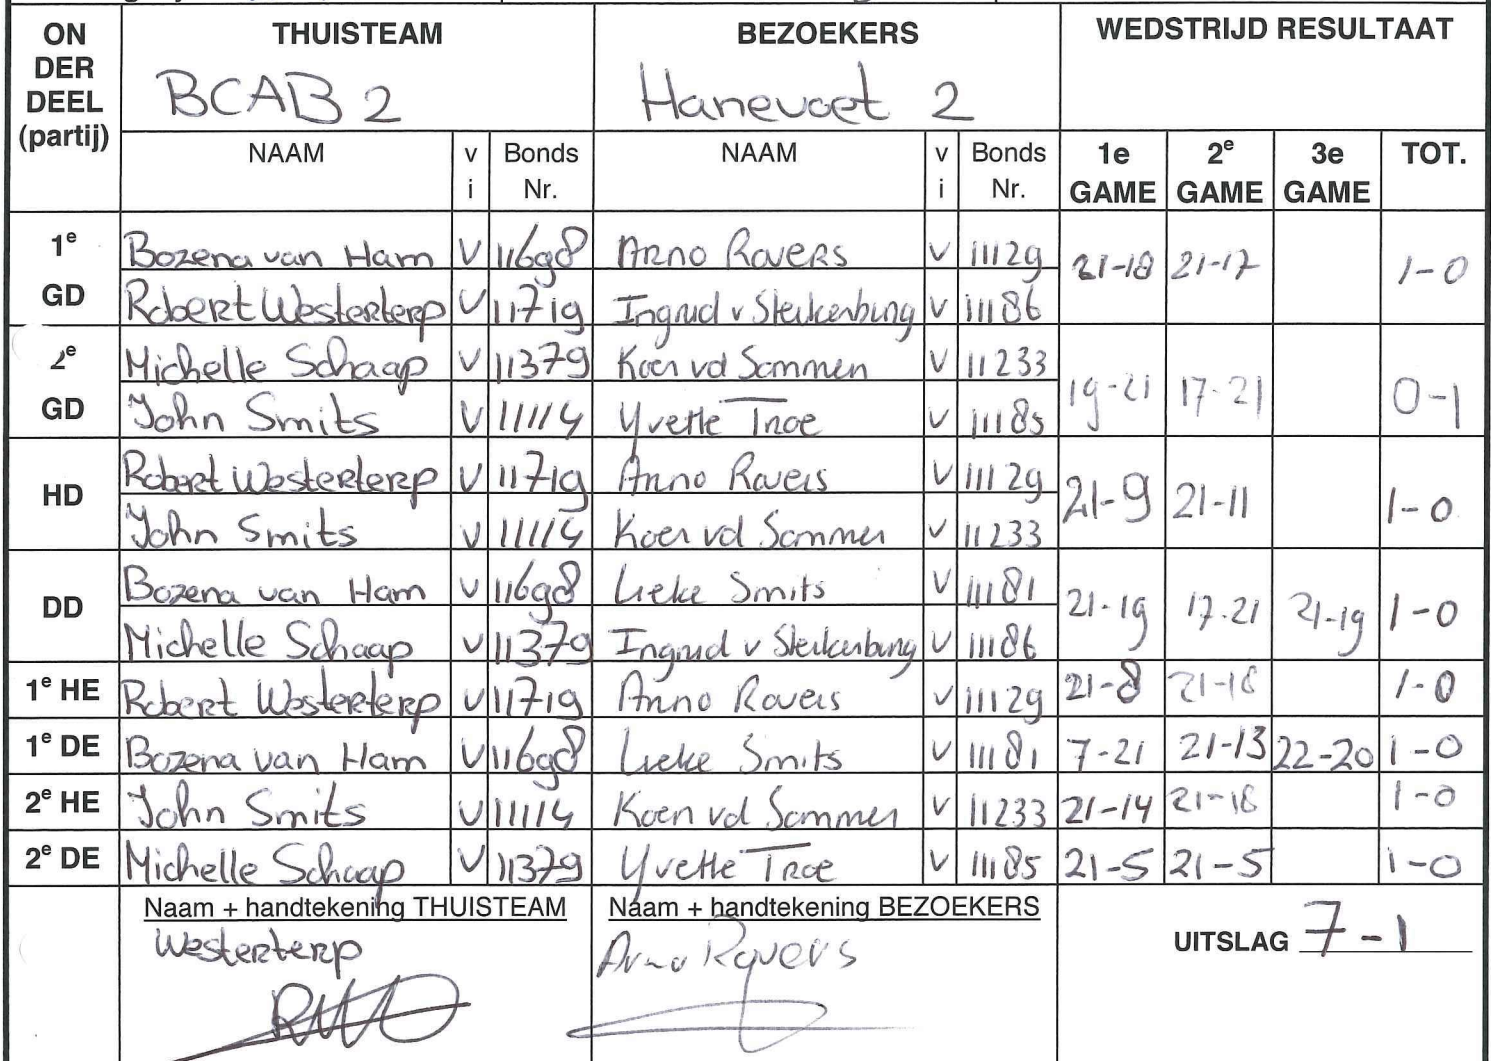 ON DER DEEL (partij) THUISTEAM BEZOEKERS WEDSTRIJD RESULTAAT
BCAB 2 Hanevoet 2
NAAM v i Bonds Nr. NAAM v i Bonds Nr. 1e GAME 2e GAME 3e GAME TOT.
1e GD Bozena van Ham V 11698 Arno Rovers V 11129 21-18 21-17 1-0
Robert Westerterp V 11719 Ingrid v Sterkenburg V 11186
2e GD Michelle Schaap V 11379 Koen vd Sommen V 11233 19-21 17-21 0-1
John Smits V 11114 Yvette Troe V 11185
HD Robert Westerterp V 11719 Arno Rovers V 11129 21-9 21-11 1-0
John Smits V 11114 Koen vd Sommen V 11233
DD Bozena van Ham V 11698 Lieke Smits V 11181 21-19 17-21 21-19 1-0
Michelle Schaap V 11379 Ingrid v Sterkenburg V 11186
1e HE Robert Westerterp V 11719 Arno Rovers V 11129 21-8 21-18 1-0
1e DE Bozena van Ham V 11698 Lieke Smits V 11181 7-21 21-13 22-20 1-0
2e HE John Smits V 11114 Koen vd Sommen V 11233 21-14 21-18 1-0
2e DE Michelle Schaap V 11379 Yvette Troe V 11185 21-5 21-5 1-0
Naam + handtekening THUISTEAM Naam + handtekening BEZOEKERS UITSLAG 7-1
Westerterp Arno Rovers